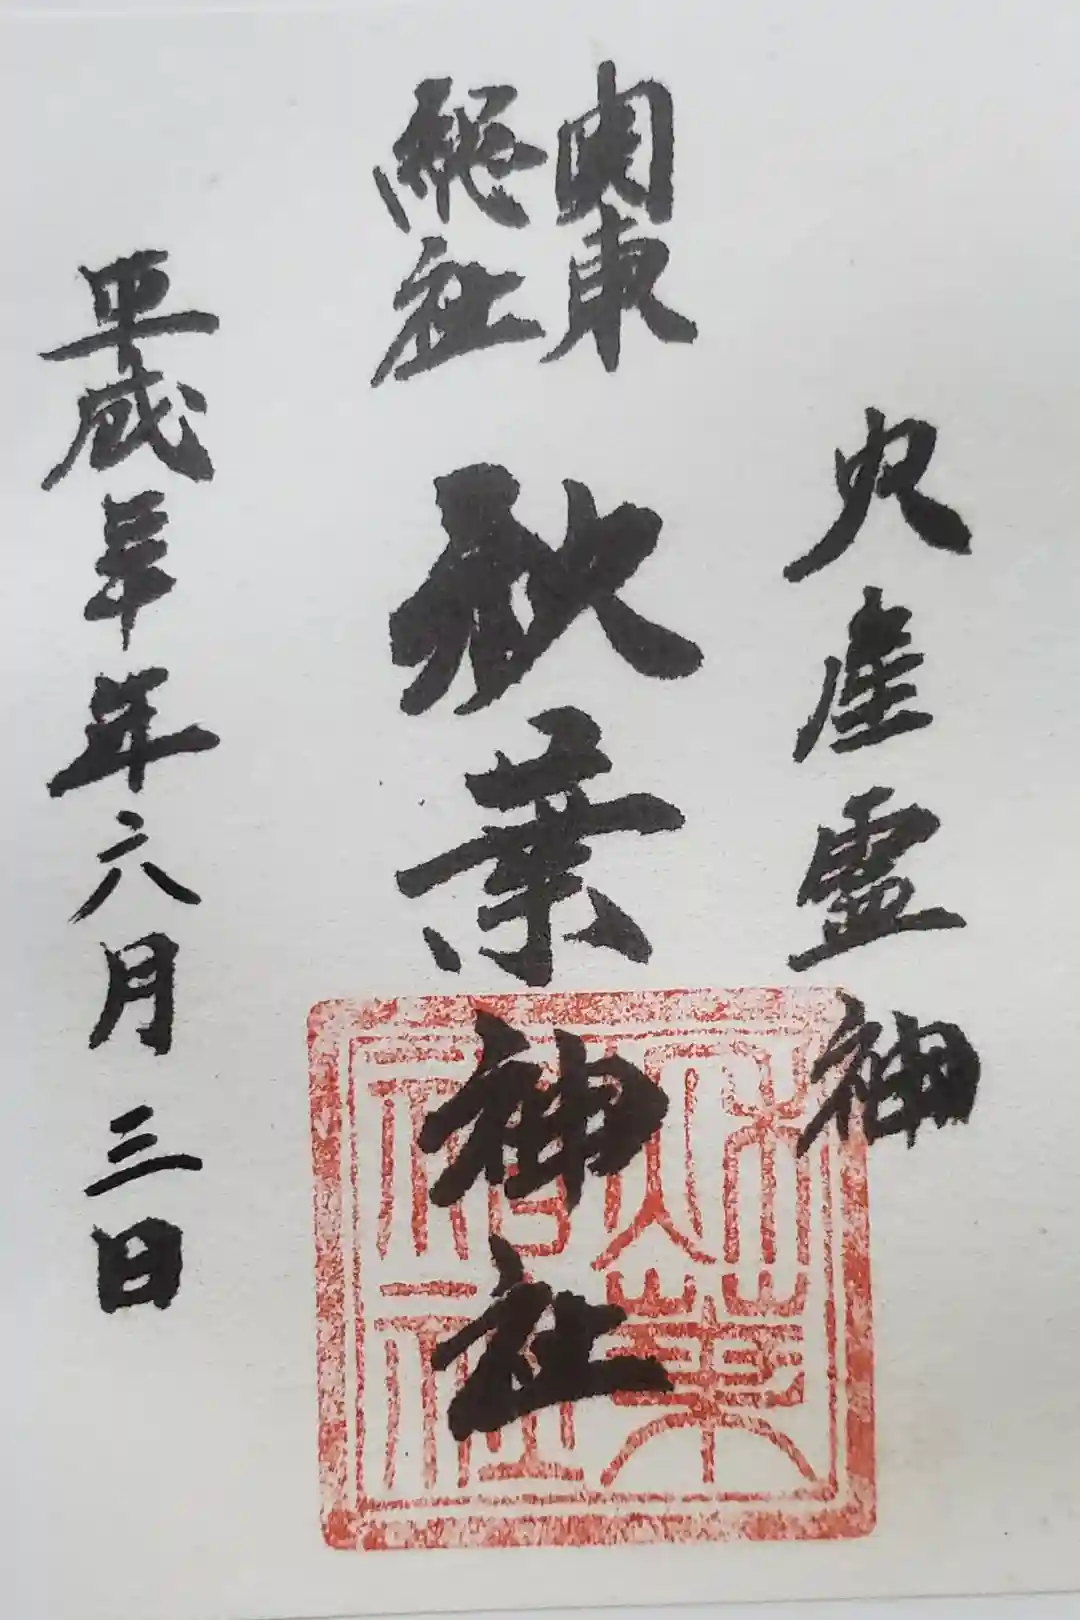 火産霊神
関東
総社
秋葉神社
平成三十年六月三日
秋葉
神社